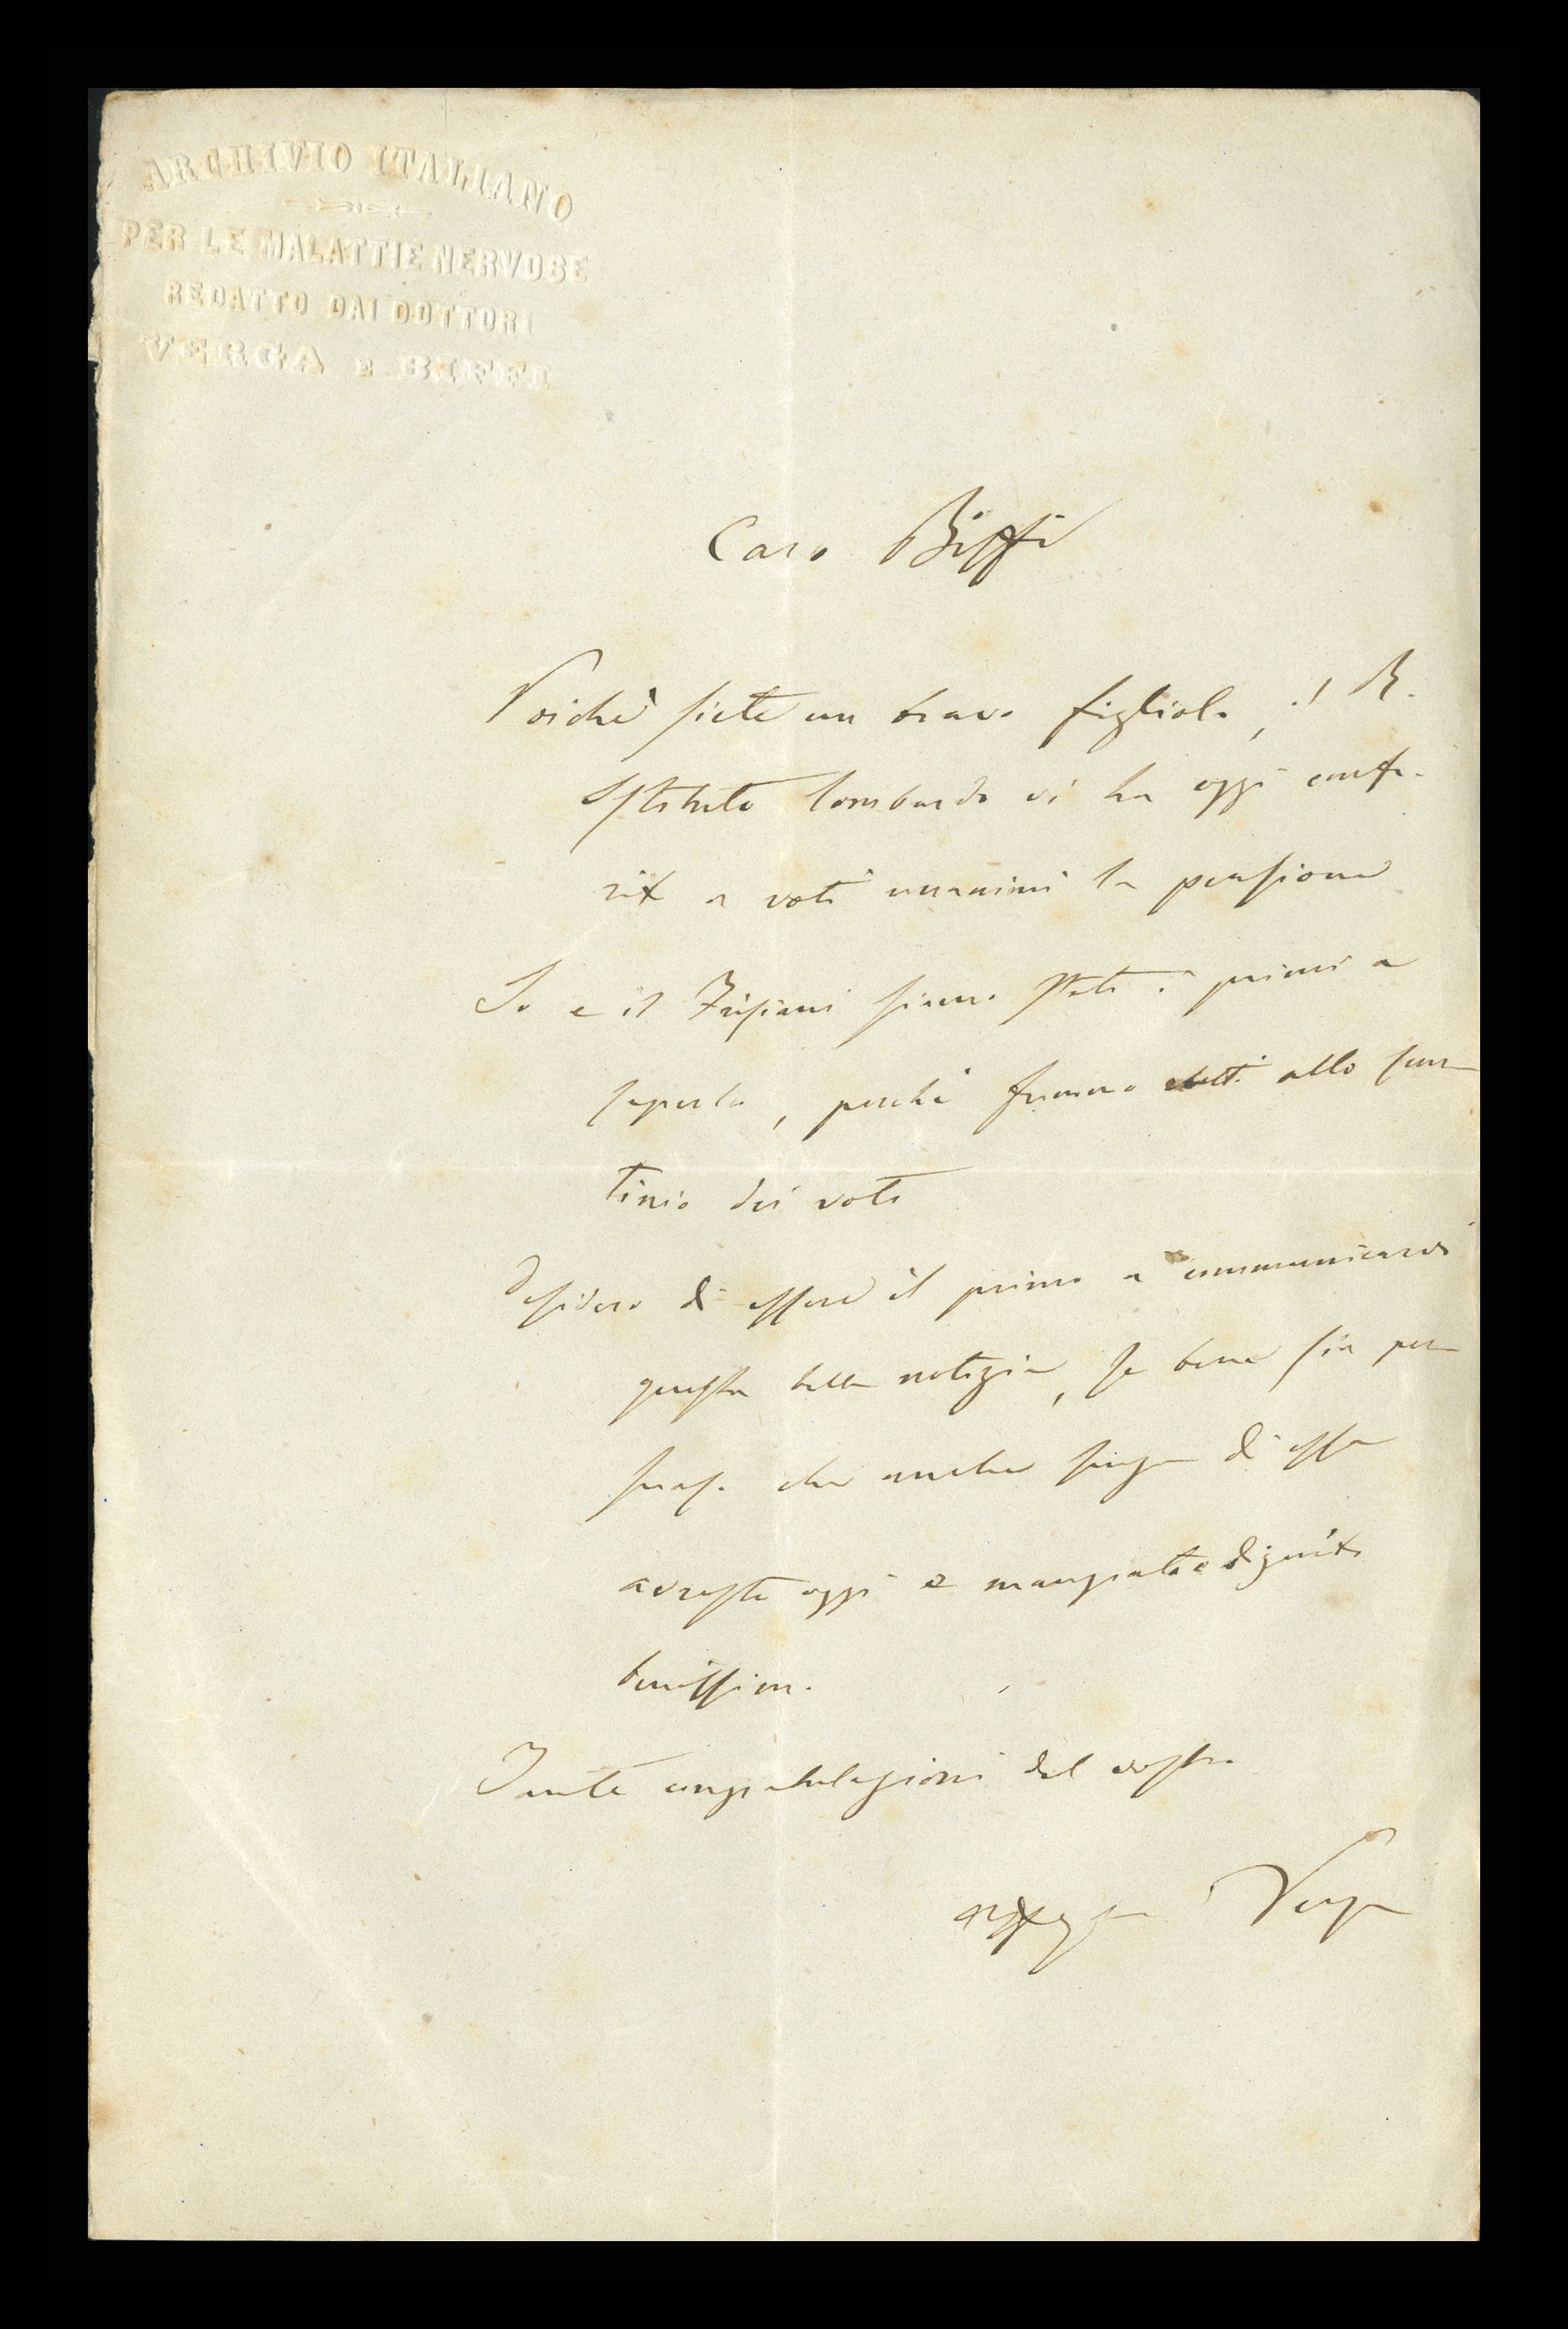 ARCHIVIO ITALIANO
PER LE MALATTIE NERVOSE
REDATTO DAI DOTTORI
VERGA E BIFFI
Caro Biffi
Poichè siete un bravo figliolo, il R.
Istituto lombardo vi ha oggi confe-
rito a voti unanimi la pensione
Io e il Frisiani siamo stati i primi a
saperlo, perchè fummo eletti allo scru-
tinio dei voti
Desidero di essere il primo a communicarvi
questa bella notizia, se bene sia per-
suaso che anche senza di essa
avreste oggi e mangiato e digerito
benissimo.
Tante congratulazioni del vostro
Verga